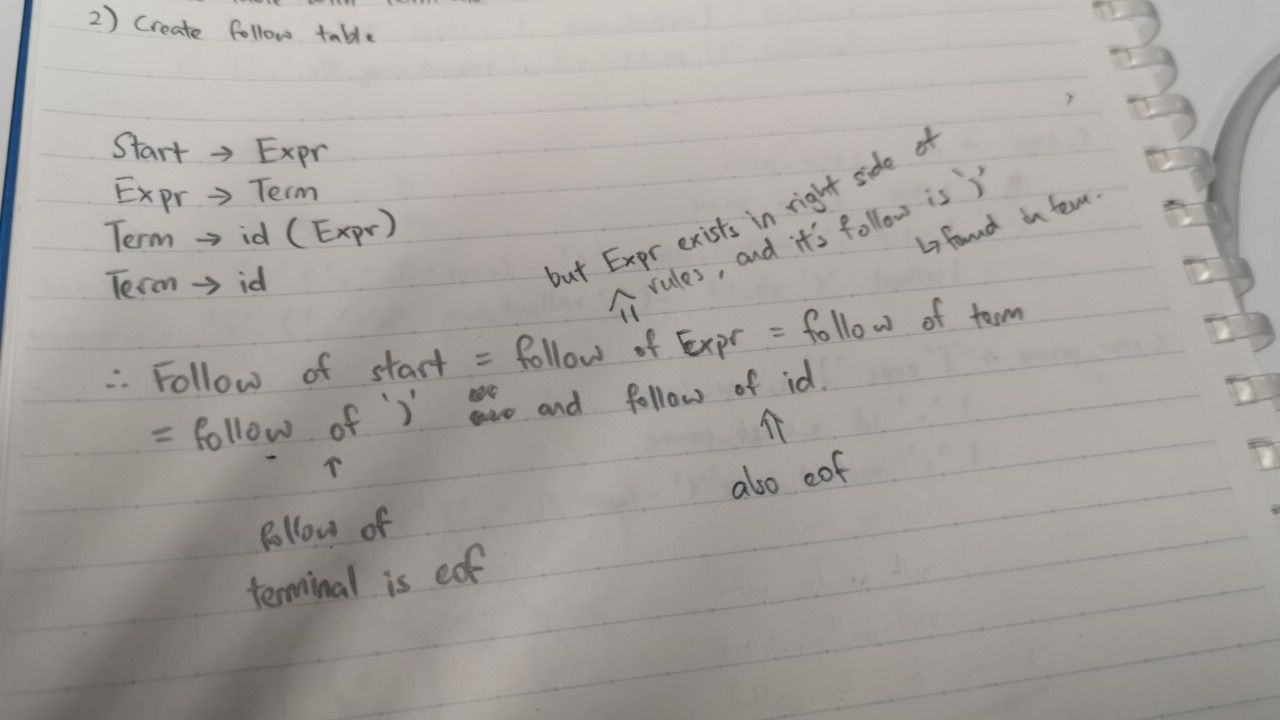 2) Create follow table
Start → Expr
Expr → Term
Term → id (Expr)
Term → id
but Expr exists in right side of
rules, and it's follow is ')'
↳ found in term.
∴ Follow of start = follow of Expr = follow of term
= follow of ')' and follow of id.
↑
follow of
terminal is eof
⇑
also eof